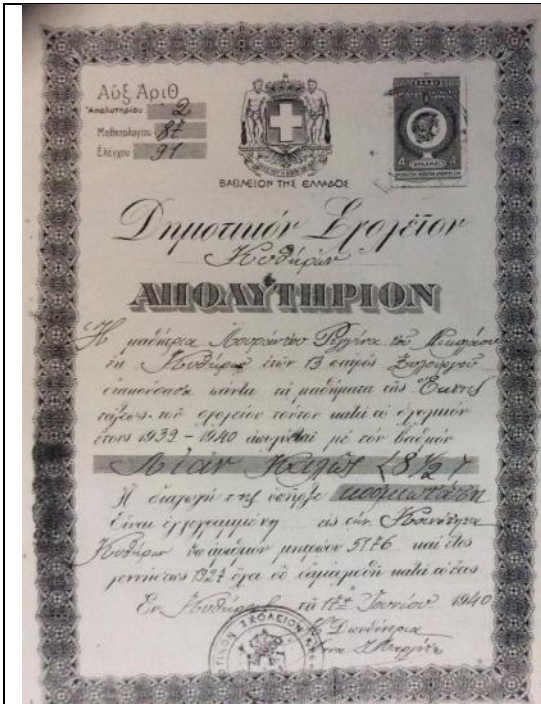 Αὐξ Ἀριθ
Ἀπολυτηρίου 2
Μαθητολογίου 87
Ἐλέγχου 91
ΕΛΛΑΣ
4 4
ΒΑΣΙΛΕΙΟΝ ΤΗΣ ΕΛΛΑΔΟΣ
Δημοτικόν Σχολεῖον
Κυθήρων
ΑΠΟΛΥΤΗΡΙΟΝ
Ἡ μαθήτρια τοῦ Νικολάου
ἐκ Κυθήρων ἐτῶν 13 πατρός ξυλουργοῦ
διακούσασα πάντα τά μαθήματα τῆς Ἕκτης
τάξεως τοῦ σχολείου τούτου κατά τό σχολικόν
ἔτος 1939 - 1940 ἀπολύεται μέ τόν βαθμόν
Λίαν Καλῶς (8 1/2)
Ἡ διαγωγή της ὑπῆρξε κοσμιωτάτη
Εἶναι ἐγγεγραμμένη εἰς τήν Κοινότητα
Κυθήρων ὑπ' ἀριθμόν μητρώου 5176 καί ἔτος
γεννήσεως 1927
Ἐν Κυθήροις τῇ 17ῃ Ἰουνίου 1940
Ἡ Διευθύντρια
ΣΧΟΛΕΙΟΝ